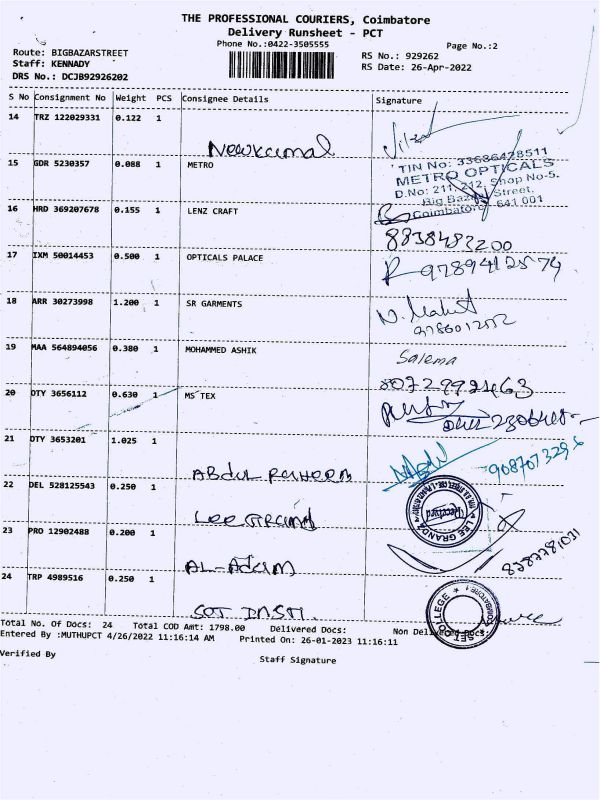 THE PROFESSIONAL COURIERS, Coimbatore
Delivery Runsheet - PCT
Phone No.:0422-3505555
Page No.:2
Route: BIGBAZARSTREET
Staff: KENNADY
DRS No.: DCJB92926202
RS No.: 929262
RS Date: 26-Apr-2022
S No Consignment No Weight PCS Consignee Details Signature
14 TRZ 122029331 0.122 1
Newkamal
15 GDR 5230357 0.088 1 METRO
TIN No: 33686428511
METRO OPTICALS
D.No: 211, 212, Shop No-5,
Big Bazaar Street,
Coimbatore 641 001
16 HRD 369207678 0.155 1 LENZ CRAFT
8838483200
17 IXM 50014453 0.500 1 OPTICALS PALACE
9789412574
18 ARR 30273998 1.200 1 SR GARMENTS
9786012552
19 MAA 564894056 0.380 1 MOHAMMED ASHIK
Salema
8072992463
20 OTY 3656112 0.630 1 MS TEX
21 OTY 3653201 1.025 1
Abdul Raheem
9087073296
22 DEL 528125543 0.250 1
Lee Grand
Received
LEE GRAND
23 PRO 12902488 0.200 1
AL-Adam
24 TRP 4989516 0.250 1
SET COLLEGE
Total No. Of Docs: 24 Total COD Amt: 1798.00 Delivered Docs: Non Delivered Docs:
Entered By :MUTHUPCT 4/26/2022 11:16:14 AM Printed On: 26-01-2023 11:16:11
Verified By
Staff Signature